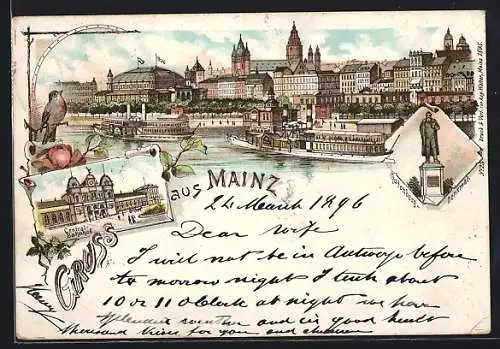 GRUSS
aus MAINZ
Central-
Bahnhof
Gutenberg-
Denkmal
24 March 1896
Dear Wife
I will not be in Antwerp before
to morrow night I think about
10 or 11 O Clock at night we have
splendid weather and in good health
thousand kisses for you and children